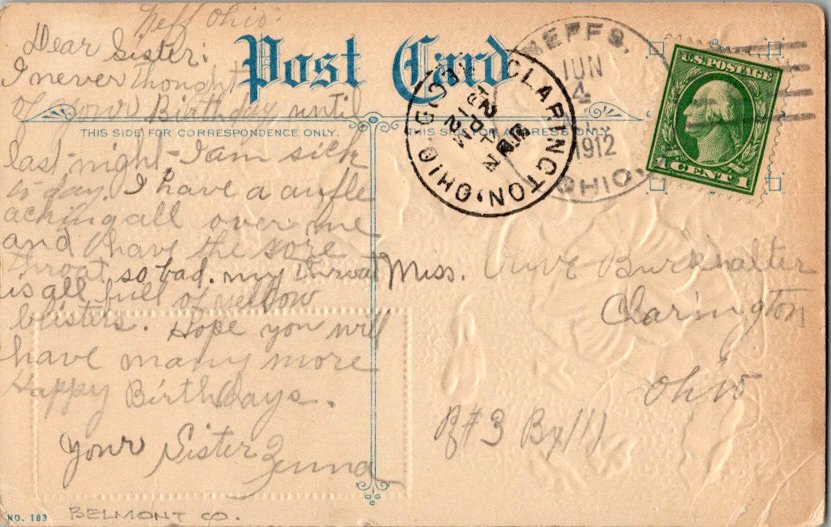 Neff Ohio.
Dear Sister:
I never thought
of your Birthday until
last night - I am sick
to day. I have a awfle
aching all over me
and I have the sore
throat so bad. my throat
is all full of yellow
blisters. Hope you will
have many more
Happy Birthdays.
Your Sister
Post Card
THIS SIDE FOR CORRESPONDENCE ONLY.
THIS SIDE FOR ADDRESS ONLY.
CLARINGTON, OHIO
NEFFS,
JUN
4
1912
OHIO.
U.S. POSTAGE
1 CENT 1
Miss. Olive Burkhalter
Clarington
Ohio
R#3 Bx 111
NO. 183
BELMONT CO.